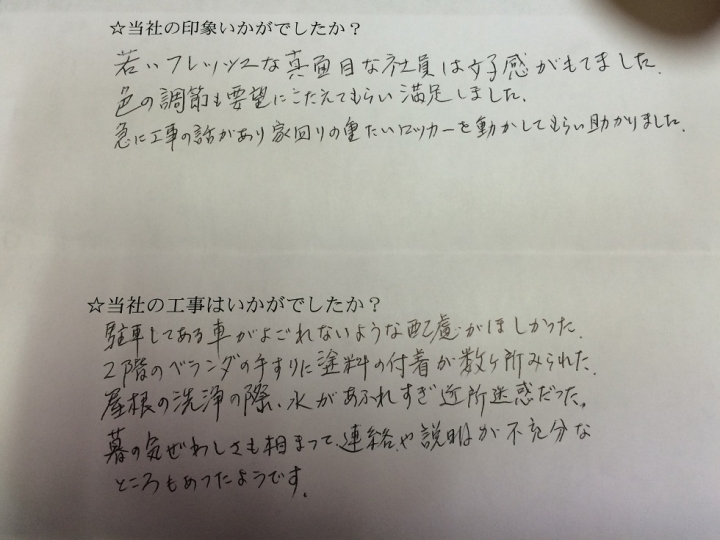 ☆当社の印象いかがでしたか？
若いフレッシュな真面目な社員は好感がもてました。
色の調節も要望にこたえてもらい満足しました。
急に工事の話があり家回りの重たいロッカーを動かしてもらい助かりました。
☆当社の工事はいかがでしたか？
駐車してある車がよごれないような配慮がほしかった。
2階のベランダの手すりに塗料の付着が数ヶ所みられた。
屋根の洗浄の際、水があふれすぎ近所迷惑だった。
暮の気ぜわしさも相まって、連絡や説明が不充分な
ところもあったようです。